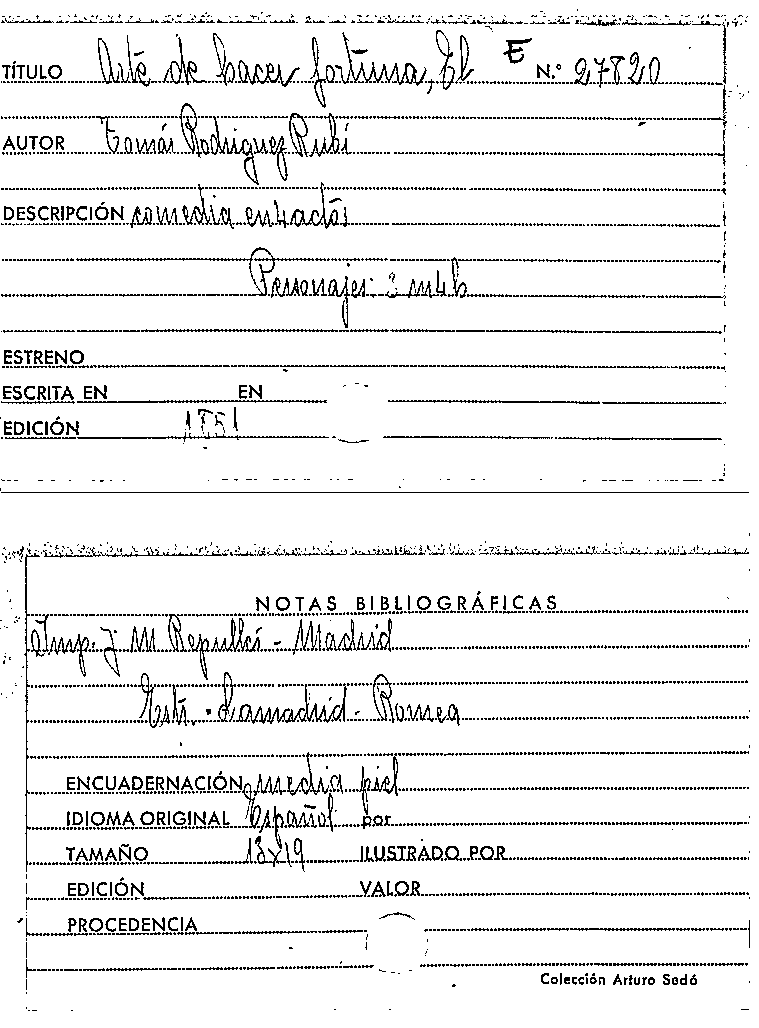 TÍTULO Arte de hacer fortuna, El E N.º 27820
AUTOR Tomás Rodriguez Rubí
DESCRIPCIÓN comedia en 4 actos
Personajes: 3 m 4 h
ESTRENO
ESCRITA EN EN
EDICIÓN 1851
NOTAS BIBLIOGRÁFICAS
Imp. J. M. Repullés - Madrid
Estr. - Lamadrid - Romea
ENCUADERNACIÓN media piel
IDIOMA ORIGINAL Español por
TAMAÑO 13x19 ILUSTRADO POR
EDICIÓN VALOR
PROCEDENCIA
Colección Arturo Sedó